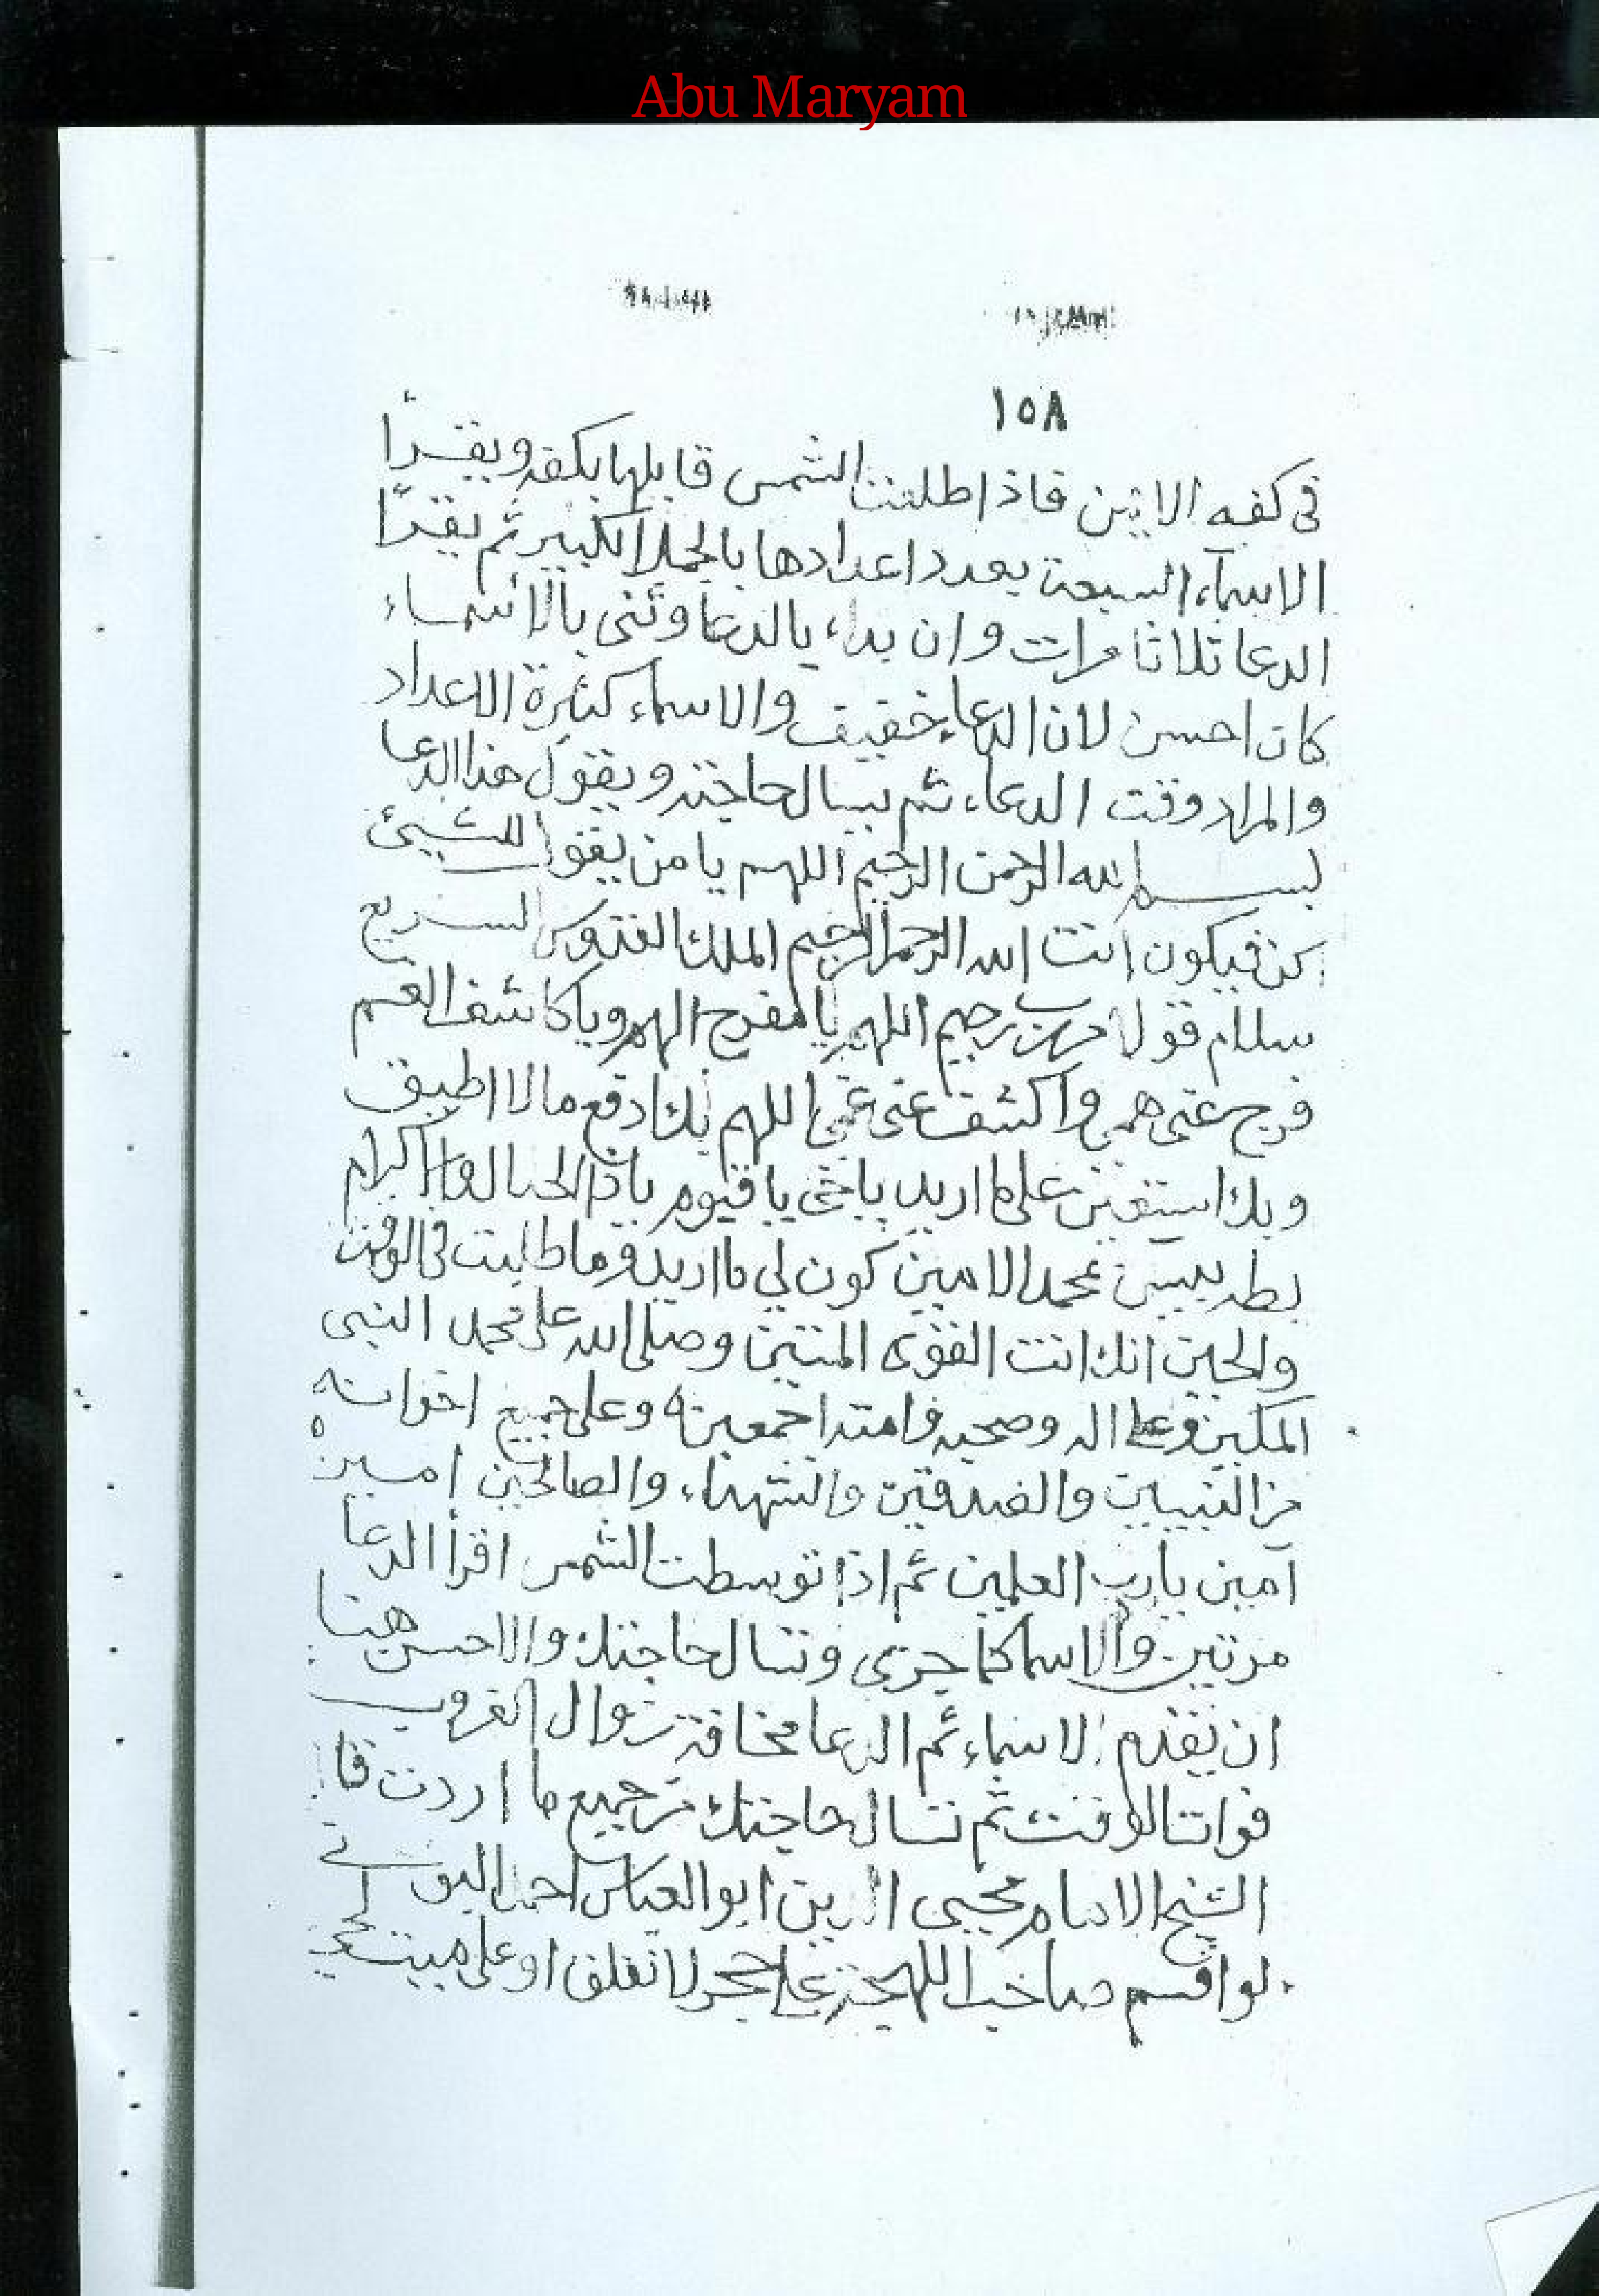 Abu Maryam
١٥٨
فى كفه الاتين فاذا طلعت الشمس قابلها بكفه ويقرأ
الاسمآء السبعة بعدد اعدادها بالجمل الكبير ثم يقرأ
الدعا ثلاثا مرات وان بداء بالدعا وثنى بالاسماء
كان احسن لان الدعا خفيف والاسماء كثيرة الاعداد
والمراد وقت الدعاء ثم يسال حاجته ويقول هذا الدعا
بسم الله الرحمن الرحيم اللهم يا من يقول للشيئ
كن فيكون انت الله الرحمن الرحيم الملك القدوس السريع
سلام قولا من رب رحيم اللهم يا مفرج الهم ويا كاشف الغم
فرج عنى همي واكشف عنى غمي اللهم بك ادفع ما لا اطيق
وبك استعين على ما اريد ياحى يا قيوم ياذا الجلال والاكرام
بطه يسن محمد الامين كون لي ما اريد وما طلبت فى الوقت
والحين انك انت القوى المتين وصلى الله على محمد النبى
المكين وعلى اله وصحبه وامته اجمعين وعلى جميع اخوانه
من النبيين والصديقين والشهداء والصالحين امين
امين يارب العلمين ثم اذا توسطت الشمس اقرأ الدعا
مرتين والاسما كما جرى وتسال حاجتك والاحسن هنا
ان تقدم الاسماء ثم الدعا مخافة زوال الغروب
فوات الوقت ثم تسال حاجتك من جميع ما اردت قا
الشيخ الامام محيى الدين ابو العباس احمد البونى
لو اقسم صاحب اللهجة على حجر لانفلق او على ميت